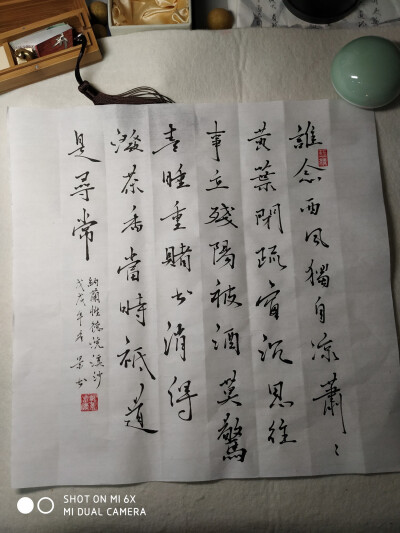 誰念西風獨自涼蕭〻
黄葉閉疏窗沉思往
事立殘陽被酒莫驚
春睡重賭书消得
潑茶香當時祇道
是尋常
納蘭性德浣溪沙
戊戌年
SHOT ON MI 6X
MI DUAL CAMERA